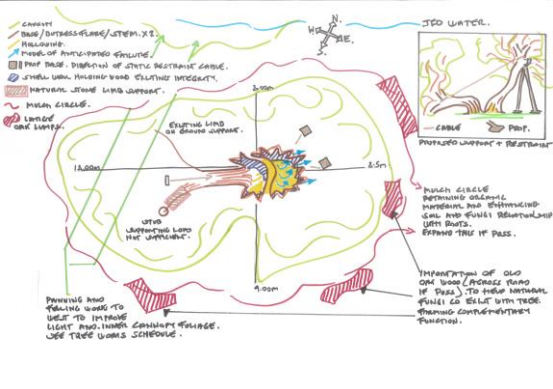 CANOPY
BASE/BUTRESS FLARE/STEM. X2.
HOLLOWING.
MODEL OF ANTICIPATED FAILURE.
PROP BASE. DIRECTION OF STATIC RESTRAINT CABLE.
SHELL WALL HOLDING WOOD EXISTING INTEGRITY.
NATURAL STONE LIMB SUPPORT.
MULCH CIRCLE.
LARGE
OAK LUMPS.
N.
W
E.
S
JED WATER.
CABLE
PROP.
PROPOSED SUPPORT + RESTRAINT
EXISTING LIMB
ON GROUND SUPPORT.
12.00m
2.5m
9.00m
STUB
SUPPORTING LOAD
NOT SUFFICIENT.
MULCH CIRCLE
RETAINING ORGANIC
MATERIAL AND ENHANCING
SOIL AND FUNGI RELATIONSHIP
WITH ROOTS.
EXPAND THIS IF POSS.
IMPORTATION OF OLD
OAK WOOD (ACROSS ROAD
IF POSS). TO HELP NATURAL
FUNGI CO EXIST WITH TREE
FORMING COMPLEMENTARY
FUNCTION.
AND
FELLING WORK TO
WEST TO IMPROVE
LIGHT AND INNER CANNOPY FOLIAGE.
SEE TREE WORKS SCHEDULE.